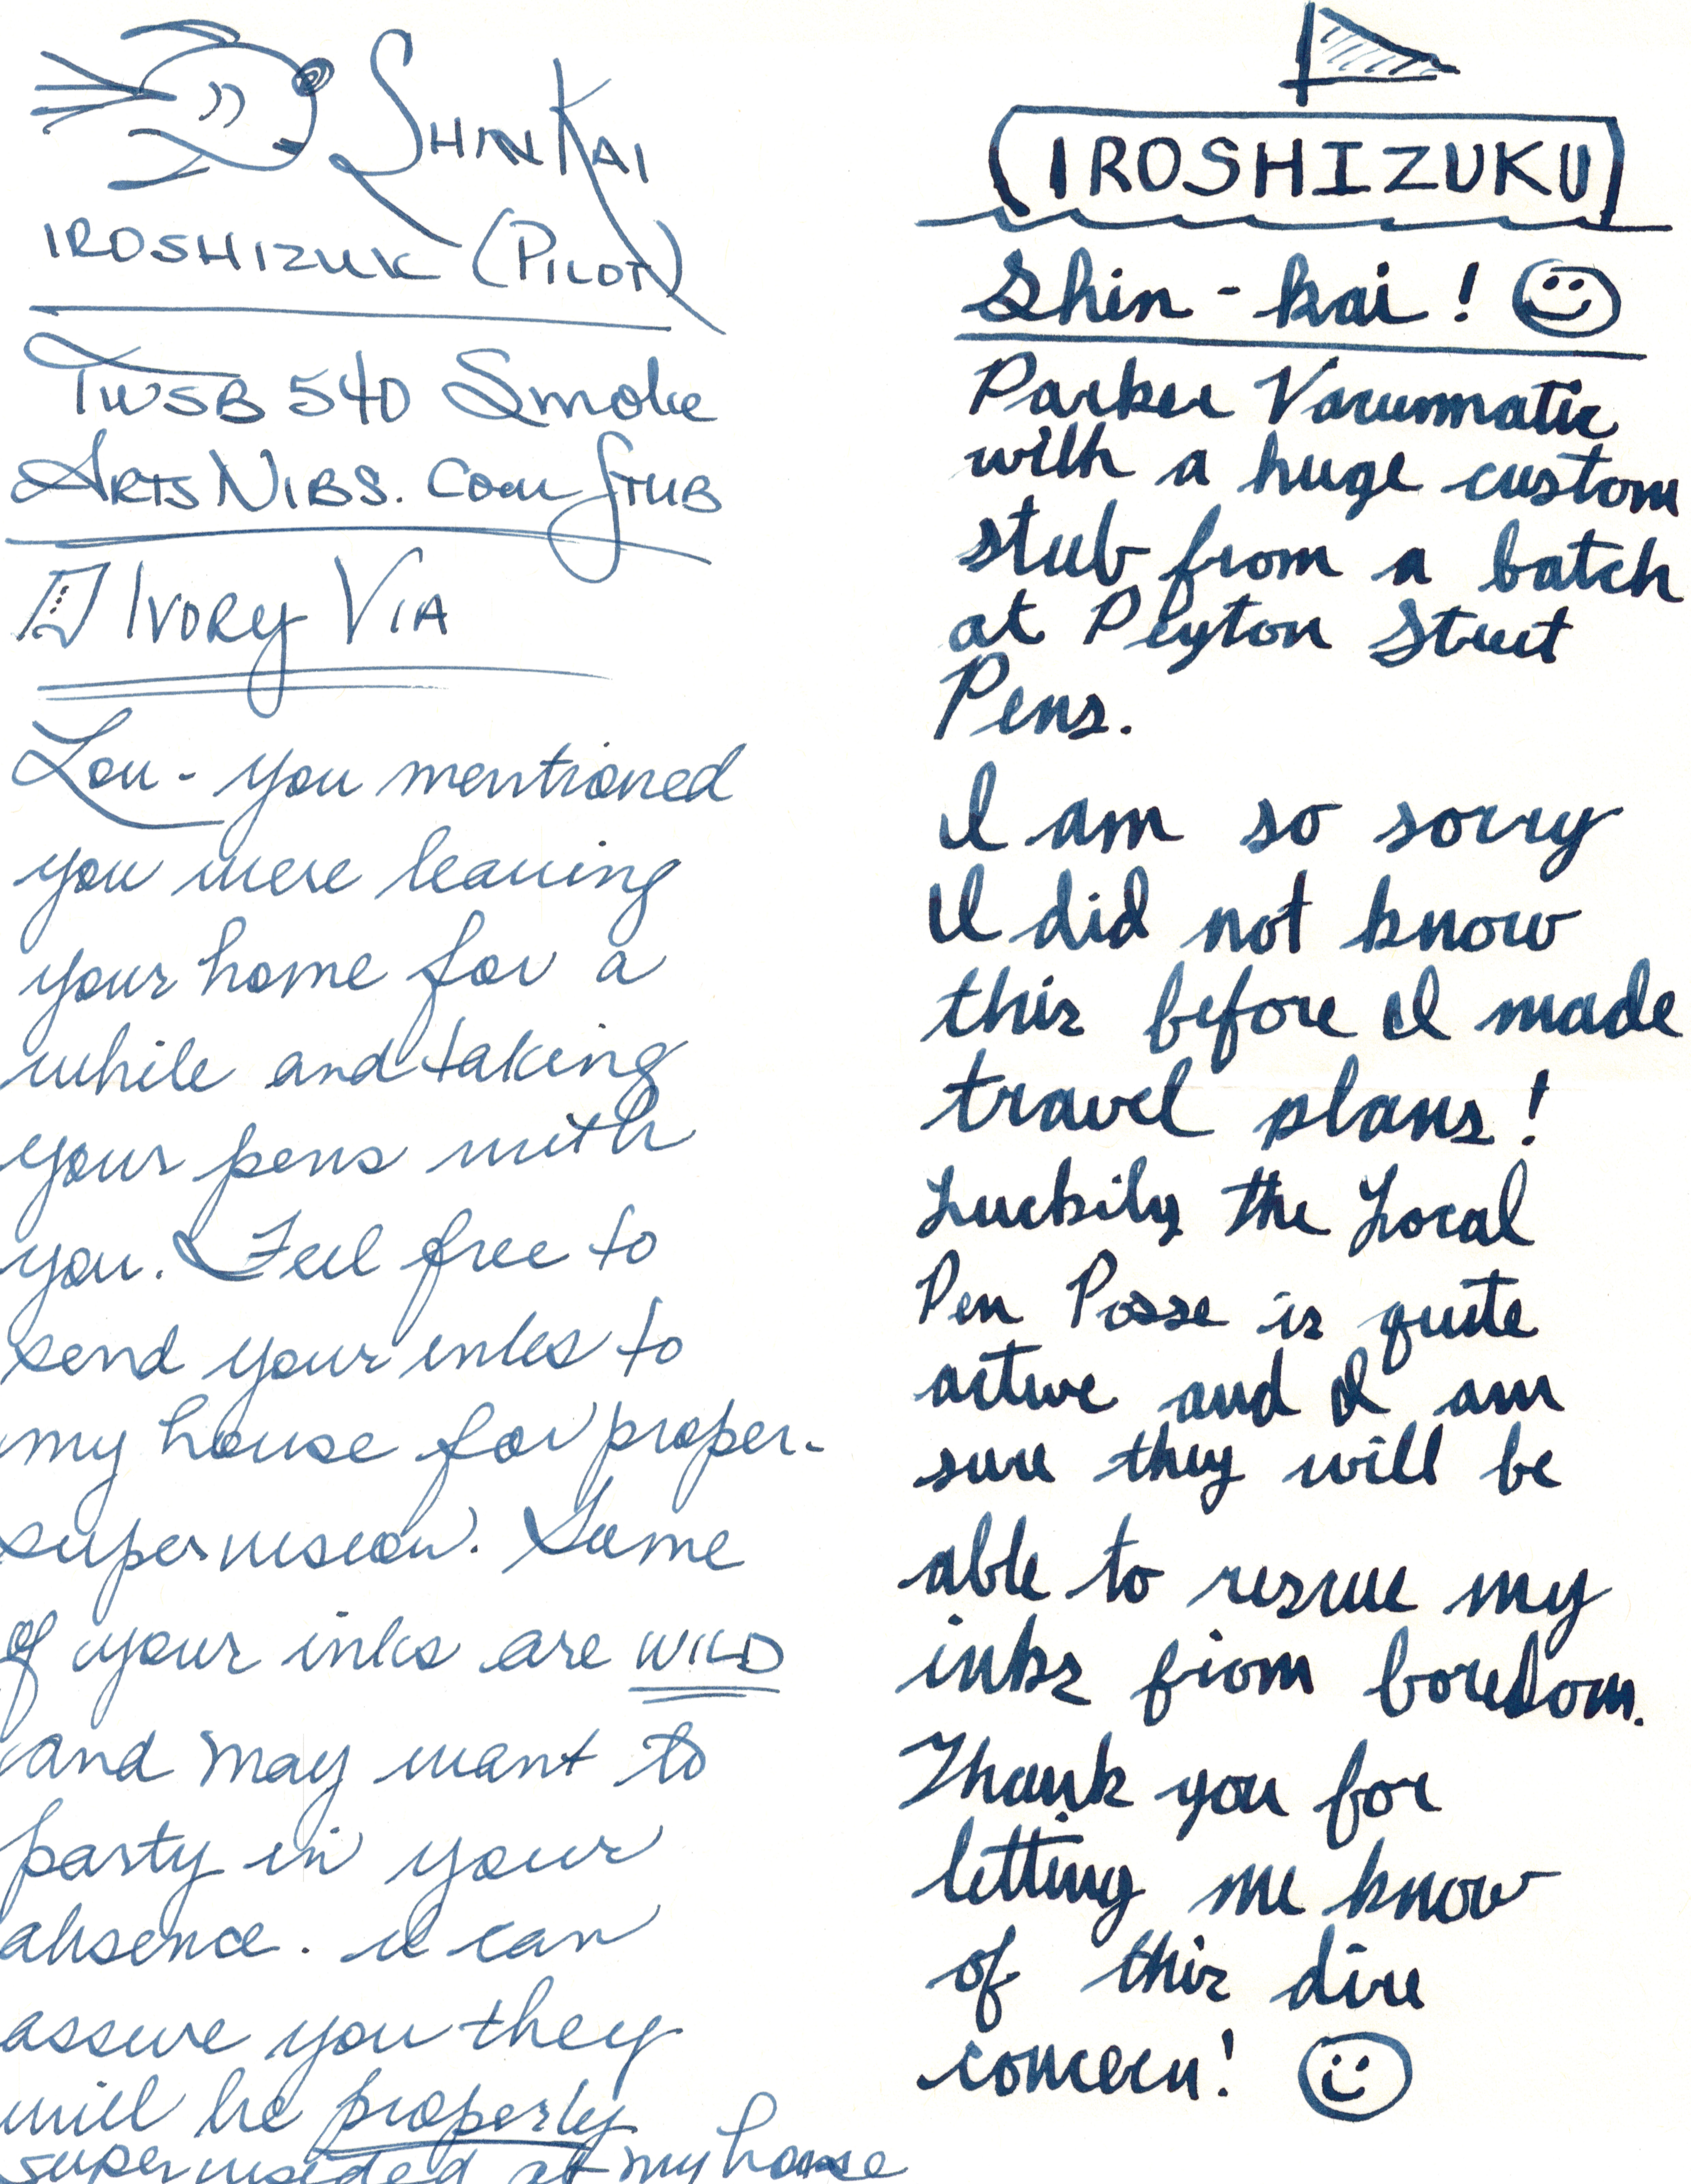 ShinKai
IROSHIZUK (Pilot)
TWSB 540 Smoke
ArtsNibs.com Stub
Ivory Via
Lou - you mentioned
you were leaving
your home for a
while and taking
your pens with
you. Feel free to
send your inks to
my house for proper
supervision. Some
of your inks are WILD
and may want to
party in your
absence. I can
assure you they
will be properly
supervisded at my house
IROSHIZUKU
Shin-kai!
Parker Vacummatic
with a huge custom
stub from a batch
at Peyton Street
Pens.
I am so sorry
I did not know
this before I made
travel plans!
Luckily the Local
Pen Posse is quite
active and I am
sure they will be
able to rescue my
inks from boredom.
Thank you for
letting me know
of this dire
concern!